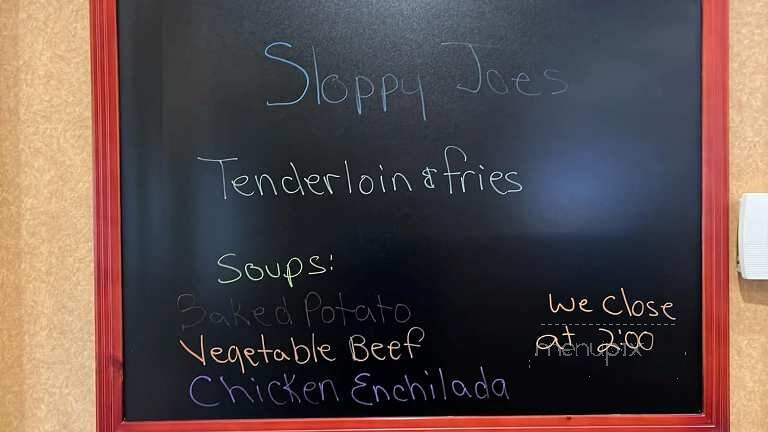 Sloppy Joes
Tenderloin & fries
Soups:
Baked Potato
Vegetable Beef
Chicken Enchilada
We Close
at 2:00
menupix